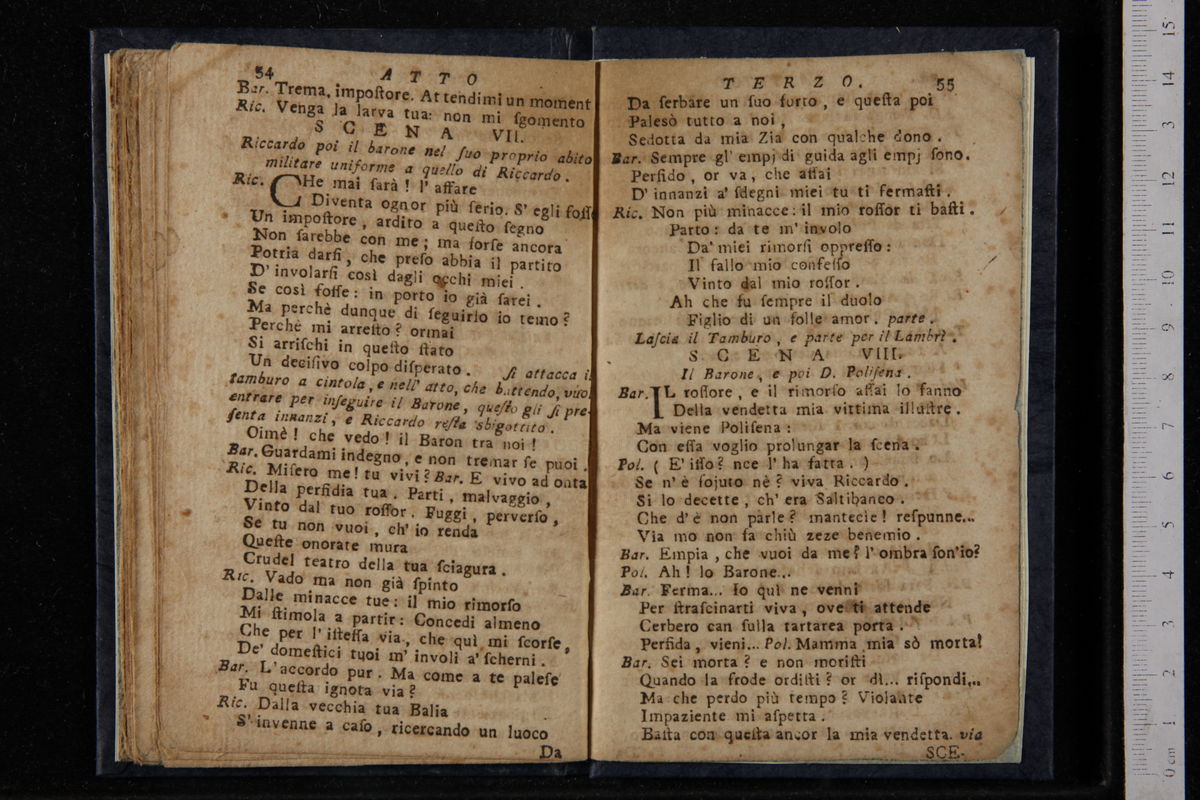 54 ATTO
Bar. Trema, impoſtore. Attendimi un moment
Ric. Venga la larva tua: non mi ſgomento
SCENA VII.
Riccardo poi il barone nel ſuo proprio abito
militare uniforme a quello di Riccardo.
Ric. CHe mai ſarà! l' affare
Diventa ognor più ſerio. S' egli foſſ
Un impoſtore, ardito a queſto ſegno
Non ſarebbe con me; ma forſe ancora
Potria darſi, che preſo abbia il partito
D' involarſi così dagli occhi miei.
Se così foſſe: in porto io già ſarei.
Ma perchè dunque di ſeguirlo io temo?
Perchè mi arreſto? ormai
Si arriſchi in queſto ſtato
Un deciſivo colpo diſperato. ſi attacca il
tamburo a cintola, e nell' atto, che battendo, vuol
entrare per inſeguire il Barone, queſto gli ſi pre-
ſenta innanzi, e Riccardo reſta sbigottito.
Oimè! che vedo! il Baron tra noi!
Bar. Guardami indegno, e non tremar ſe puoi.
Ric. Miſero me! tu vivi? Bar. E vivo ad onta
Della perfidia tua. Parti, malvaggio,
Vinto dal tuo roſſor. Fuggi, perverſo,
Se tu non vuoi, ch' io renda
Queſte onorate mura
Crudel teatro della tua ſciagura.
Ric. Vado ma non già ſpinto
Dalle minacce tue: il mio rimorſo
Mi ſtimola a partir: Concedi almeno
Che per l' iſteſſa via, che quì mi ſcorſe,
De' domeſtici tuoi m' involi a' ſcherni.
Bar. L' accordo pur. Ma come a te paleſe
Fu queſta ignota via?
Ric. Dalla vecchia tua Balia
S' invenne a caſo, ricercando un luoco
Da
TERZO. 55
Da ſerbare un ſuo furto, e queſta poi
Palesò tutto a noi,
Sedotta da mia Zia con qualche dono.
Bar. Sempre gl' empj di guida agli empj ſono.
Perfido, or va, che aſſai
D' innanzi a' ſdegni miei tu ti fermaſti.
Ric. Non più minacce: il mio roſſor ti baſti.
Parto: da te m' involo
Da' miei rimorſi oppreſſo:
Il fallo mio confeſſo
Vinto dal mio roſſor.
Ah che fu ſempre il duolo
Figlio di un folle amor. parte.
Laſcia il Tamburo, e parte per il Lambrì.
SCENA VIII.
Il Barone, e poi D. Poliſena.
Bar. IL roſſore, e il rimorſo aſſai lo fanno
Della vendetta mia vittima illuſtre.
Ma viene Poliſena:
Con eſſa voglio prolungar la ſcena.
Pol. ( E' iſſo? nce l' ha fatta. )
Se n' è ſojuto nè? viva Riccardo.
Si lo decette, ch' era Saltibanco.
Che d' è non parle? mantecie! reſpunne...
Via mo non fa chiù zeze benemio.
Bar. Empia, che vuoi da me? l' ombra ſon' io?
Pol. Ah! lo Barone...
Bar. Ferma... Io quì ne venni
Per ſtraſcinarti viva, ove ti attende
Cerbero can ſulla tartarea porta.
Perfida, vieni... Pol. Mamma mia sò morta!
Bar. Sei morta? e non moriſti
Quando la frode ordiſti? or dì... riſpondi...
Ma che perdo più tempo? Violante
Impaziente mi aſpetta.
Baſta con queſta ancor la mia vendetta. via
SCE-
0 cm 1 2 3 4 5 6 7 8 9 10 11 12 13 14 15